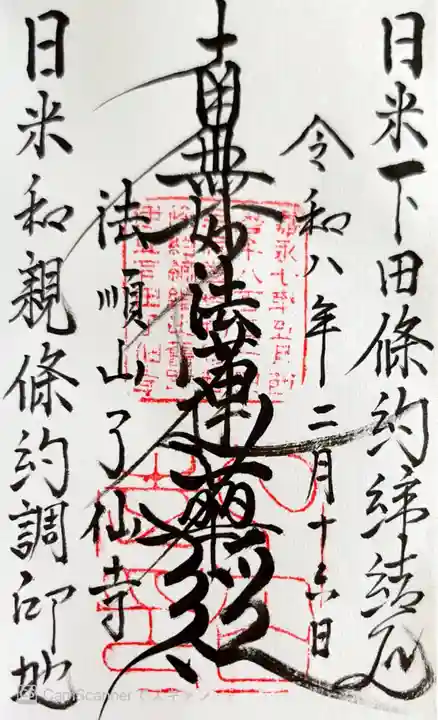 日米下田條約締結及
令和八年二月十六日
南無妙法蓮華經
法順山了仙寺
日米和親條約調印地
CamScannerでスキャン